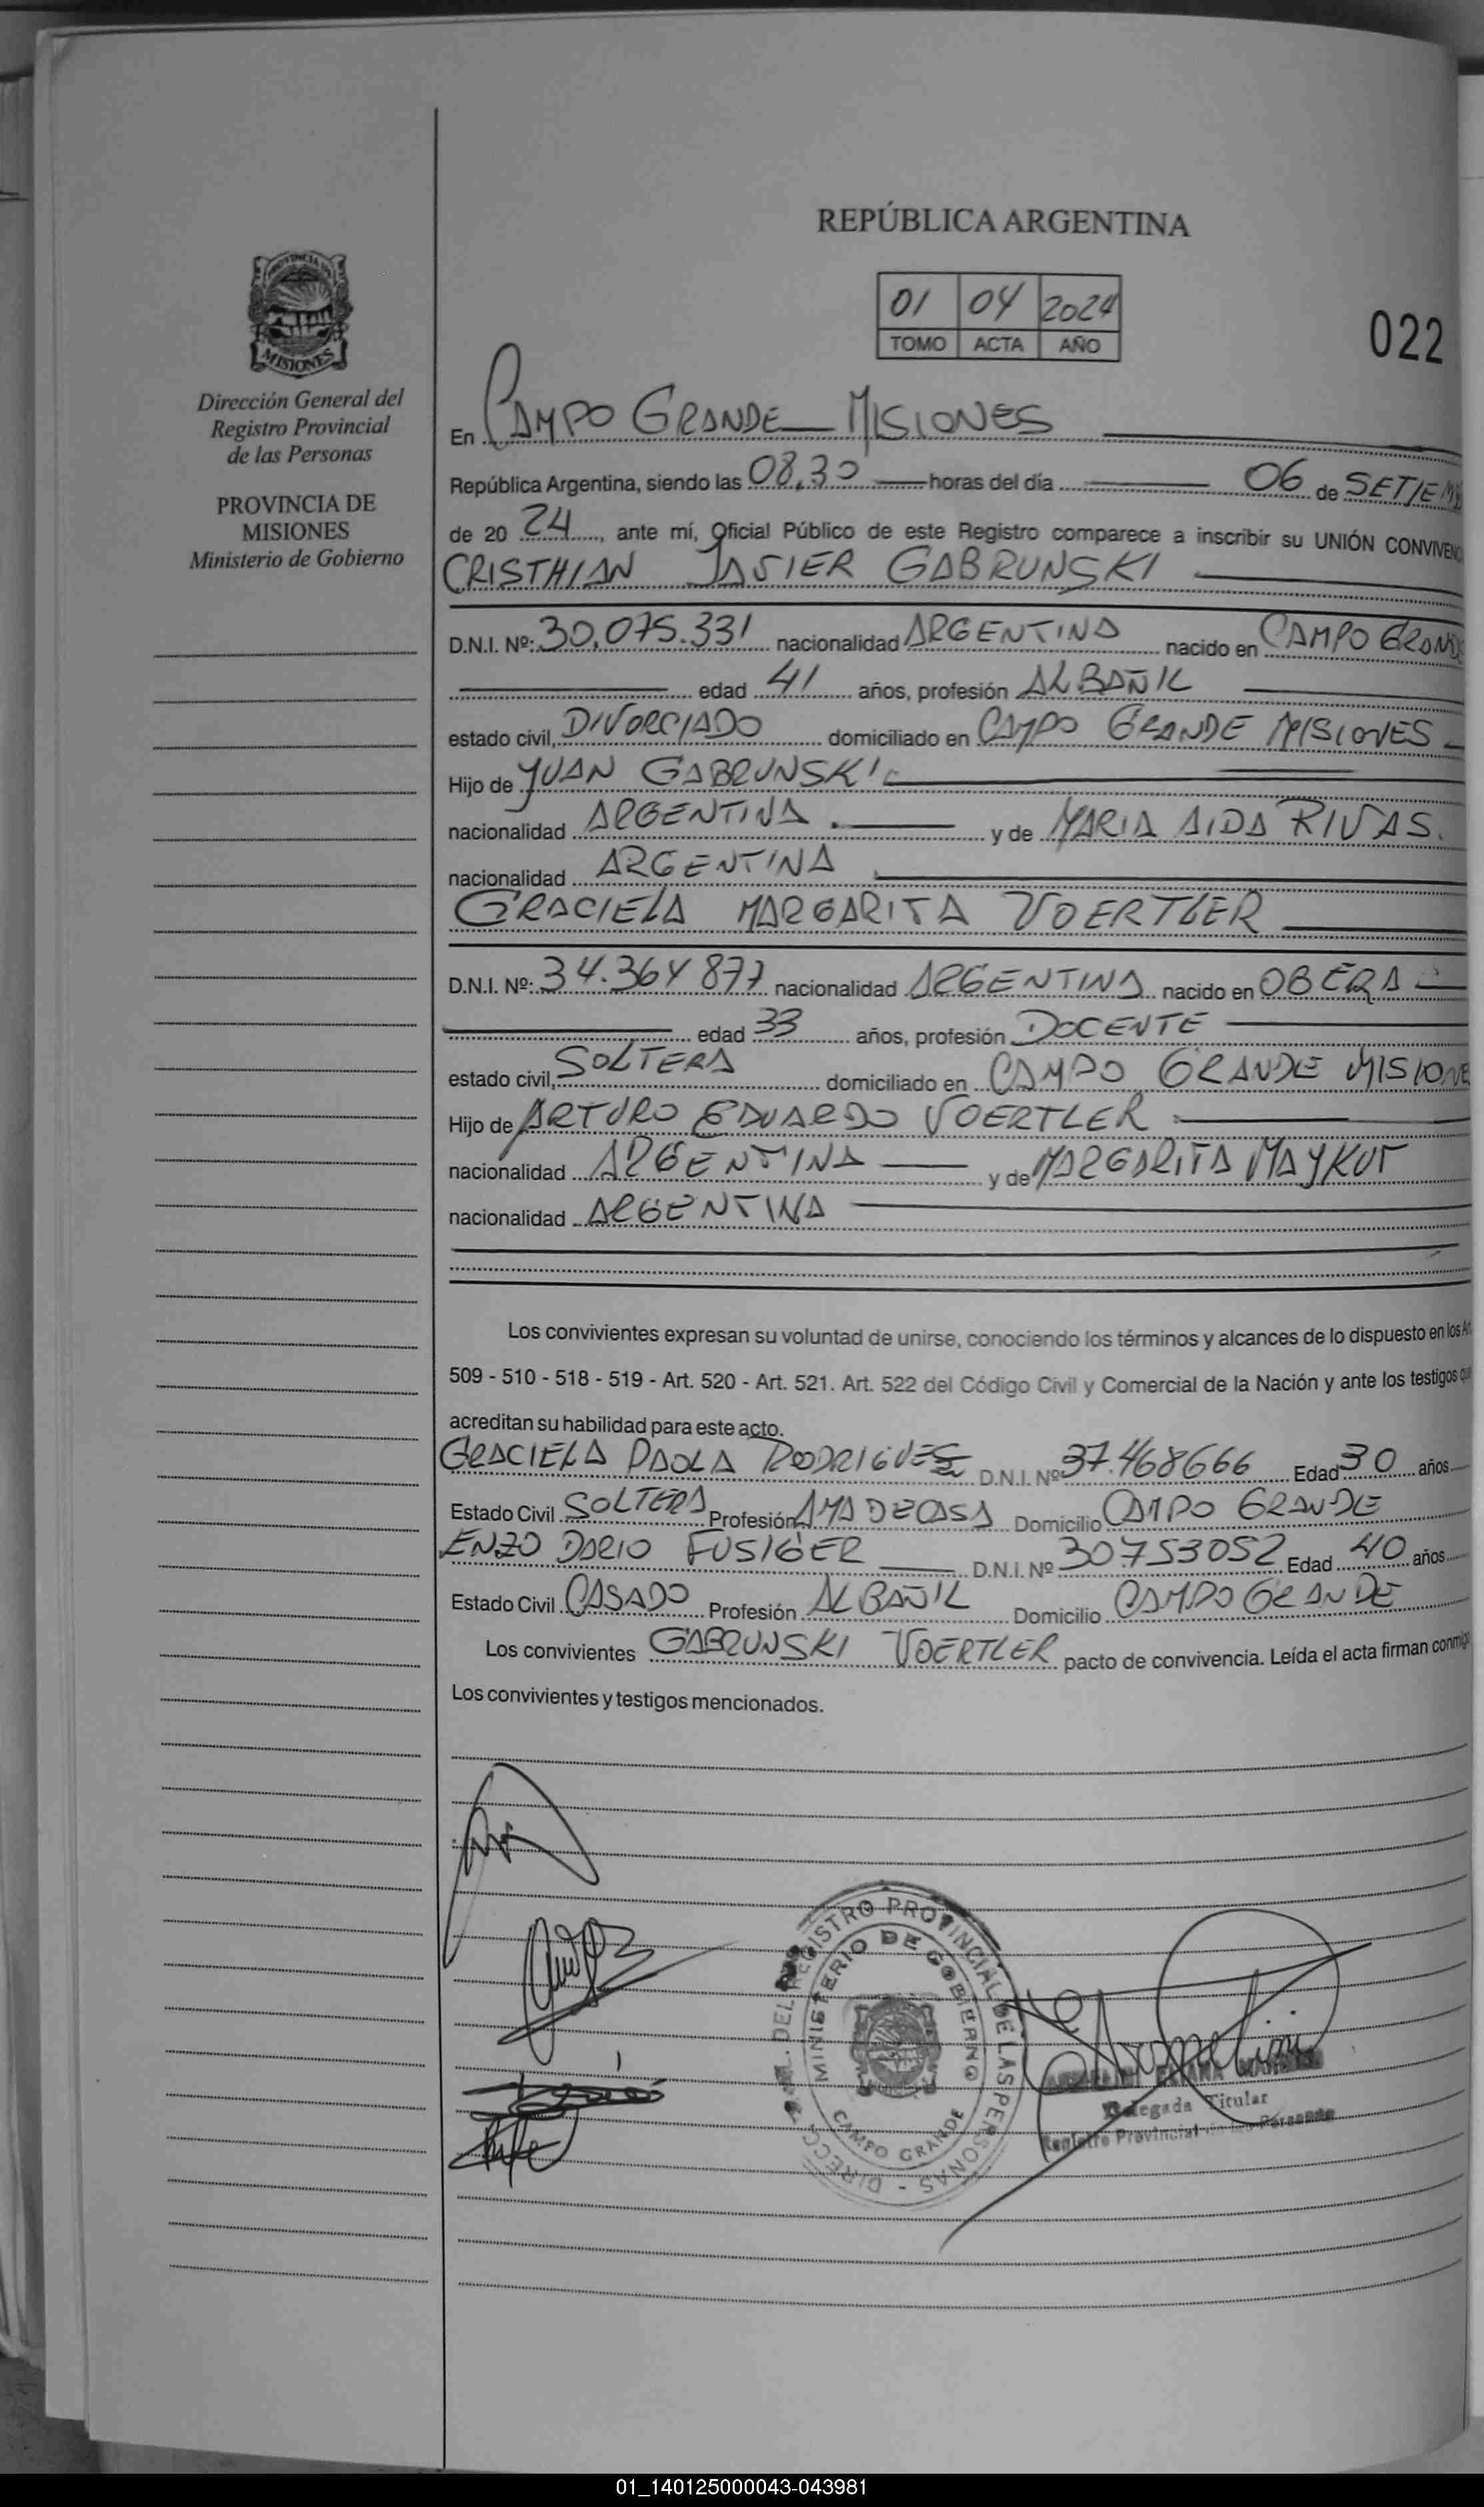 REPÚBLICA ARGENTINA
01 04 2024
TOMO ACTA AÑO
022
PROVINCIA DE
MISIONES
Dirección General del
Registro Provincial
de las Personas
PROVINCIA DE
MISIONES
Ministerio de Gobierno
En CAMPO GRANDE MISIONES
República Argentina, siendo las 08,30 horas del día 06 de SETIEM
de 20 24, ante mí, Oficial Público de este Registro comparece a inscribir su UNIÓN CONVIVENC
CRISTHIAN JAVIER GABRUNSKI
D.N.I. Nº: 30.075.331 nacionalidad ARGENTINA nacido en CAMPO GRAND
edad 41 años, profesión ALBAÑIL
estado civil, DIVORCIADO domiciliado en CAMPO GRANDE MISIONES
Hijo de JUAN GABRUNSKI
nacionalidad ARGENTINA y de MARIA AIDA RIVAS.
nacionalidad ARGENTINA
GRACIELA MARGARITA VOERTLER
D.N.I. Nº: 34.364 877 nacionalidad ARGENTINA nacido en OBERA
edad 33 años, profesión DOCENTE
estado civil, SOLTERA domiciliado en CAMPO GRANDE MISIONE
Hijo de ARTURO EDUARDO VOERTLER
nacionalidad ARGENTINA y de MARGARITA MAYKUT
nacionalidad ARGENTINA
Los convivientes expresan su voluntad de unirse, conociendo los términos y alcances de lo dispuesto en los Ar
509 - 510 - 518 - 519 - Art. 520 - Art. 521. Art. 522 del Código Civil y Comercial de la Nación y ante los testigos que
acreditan su habilidad para este acto.
GRACIELA PAOLA RODRIGUES D.N.I. Nº 37.468666 Edad 30 años
Estado Civil SOLTERA Profesión AMA DE CASA Domicilio CAMPO GRANDE
ENZO DARIO FUSIGER D.N.I. Nº 30753052 Edad 40 años
Estado Civil CASADO Profesión ALBAÑIL Domicilio CAMPO GRANDE
Los convivientes GABRUNSKI VOERTLER pacto de convivencia. Leída el acta firman conmigo
Los convivientes y testigos mencionados.
DIRECC DEL REGISTRO PROVINCIAL DE LAS PERSONAS
MINISTERIO DE GOBIERNO
CAMPO GRANDE
Delegada Titular
Registro Provincial de las Personas
01_140125000043-043981